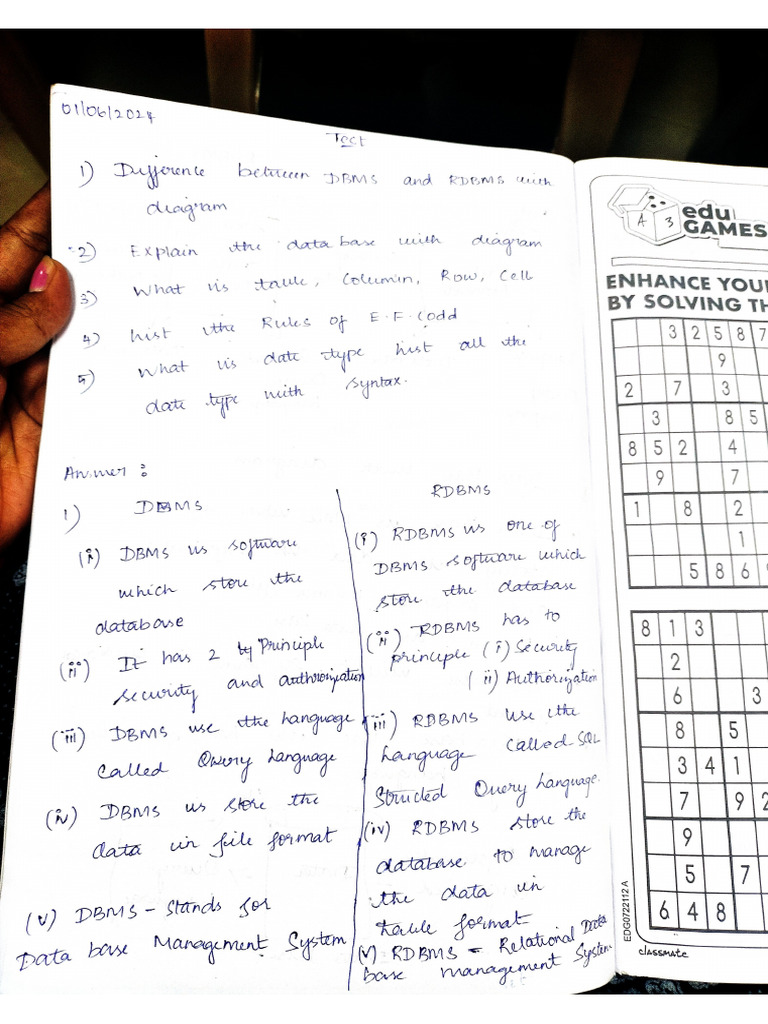 01/06/2024
Test
1) Difference between DBMS and RDBMS with
diagram
2) Explain the data base with diagram
3) What is table, Column, Row, Cell
4) List the Rules of E.F. Codd
5) What is date type list all the
date type with syntax.
Answer :
1) DBMS
(i) DBMS is software
which store the
database
(ii) It has 2 Principle
security and authorization
(iii) DBMS use the language
called Query language
(iv) DBMS is store the
data in file format
(v) DBMS - Stands for
Data base Management System
RDBMS
(i) RDBMS is one of
DBMS software which
store the database
(ii) RDBMS has to
principle (i) Security
(ii) Authorization
(iii) RDBMS use the
language called SQL
Structed Query language.
(iv) RDBMS store the
database to manage
the data in
table format
(v) RDBMS - Relational Data
base management System.
A 3
edu
GAMES
ENHANCE YOU
BY SOLVING TH
3 2 5 8 7
9
2 7 3
3 8 5
8 5 2 4
9 7
1 8 2
1
5 8 6
8 1 3
2
6 3
8 5
3 4 1
7 9 2
9
5 7
6 4 8
EDG0722112 A
classmate